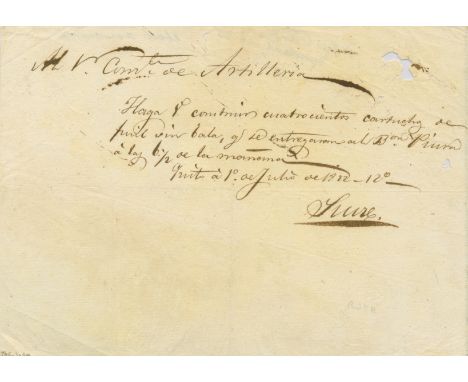 Al Sr. Comte. de Artilleria
Haga V construir cuatrocientos cartuchos de
fusil sin bala, q̃ se entregaran al Bon. Piura
à las 6½ de la mañana
Quito à 1º. de Julio de 1822 - 12º
Sucre.